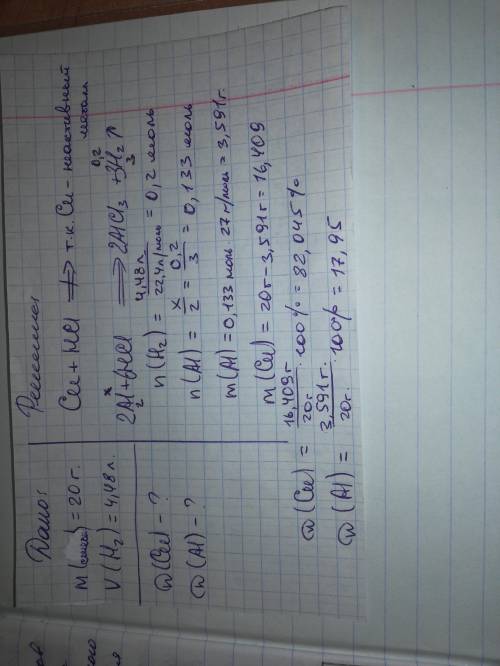 Дано:
m(смеси) = 20 г.
V(H₂) = 4,48 л.
ω(Cu) - ?
ω(Al) - ?
Решение:
Cu + HCl ≠> т.к. Cu - неактивный
металл
x 0,2
2Al + 6HCl ⟹ 2AlCl₃ + 3H₂↑
2 3
n(H₂) = 4,48л / 22,4л/моль = 0,2 моль
n(Al) = x/2 = 0,2/3 = 0,133 моль
m(Al) = 0,133 моль · 27 г/моль = 3,591г.
m(Cu) = 20г - 3,591г = 16,409
ω(Cu) = 16,409г / 20г · 100% = 82,045%
ω(Al) = 3,591г. / 20г. · 100% = 17,95